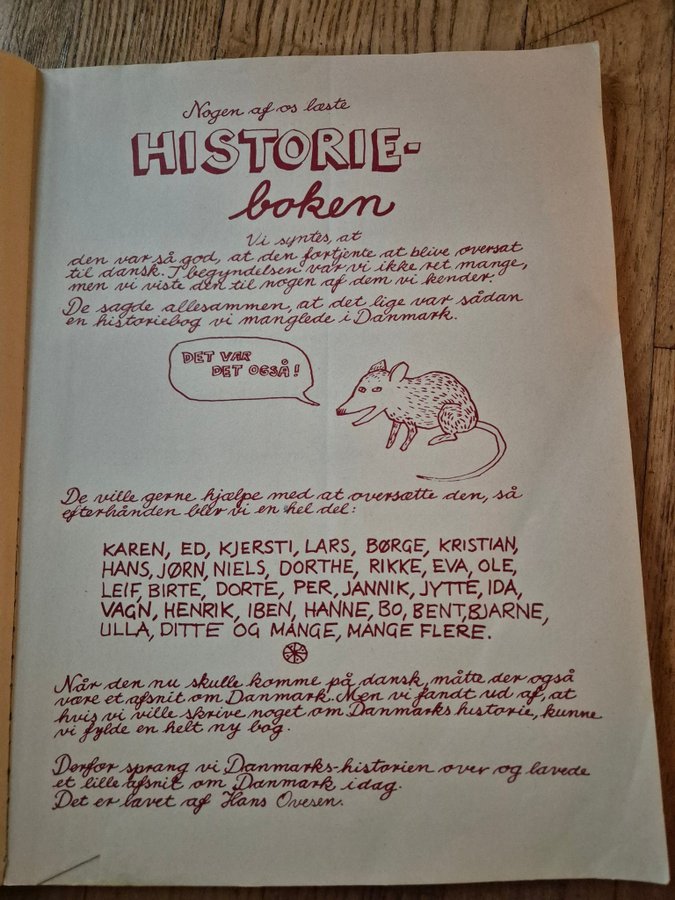 Nogen af os læste
HISTORIE-
boken
Vi syntes, at
den var så god, at den fortjente at blive oversat
til dansk. I begyndelsen var vi ikke ret mange,
men vi viste den til nogen af dem vi kender.
De sagde allesammen, at det lige var sådan
en historiebog vi manglede i Danmark.
DET VAR
DET OGSÅ!
De ville gerne hjælpe med at oversætte den, så
efterhånden blev vi en hel del:
KAREN, ED, KJERSTI, LARS, BØRGE, KRISTIAN,
HANS, JØRN, NIELS, DORTHE, RIKKE, EVA, OLE,
LEIF, BIRTE, DORTE, PER, JANNIK, JYTTE, IDA,
VAGN, HENRIK, IBEN, HANNE, BO, BENT, BJARNE,
ULLA, DITTE OG MANGE, MANGE FLERE.
Når den nu skulle komme på dansk, måtte der også
være et afsnit om Danmark. Men vi fandt ud af, at
hvis vi ville skrive noget om Danmarks historie, kunne
vi fylde en helt ny bog.
Derfor sprang vi Danmarks-historien over og lavede
et lille afsnit om Danmark idag.
Det er lavet af Hans Ovesen.